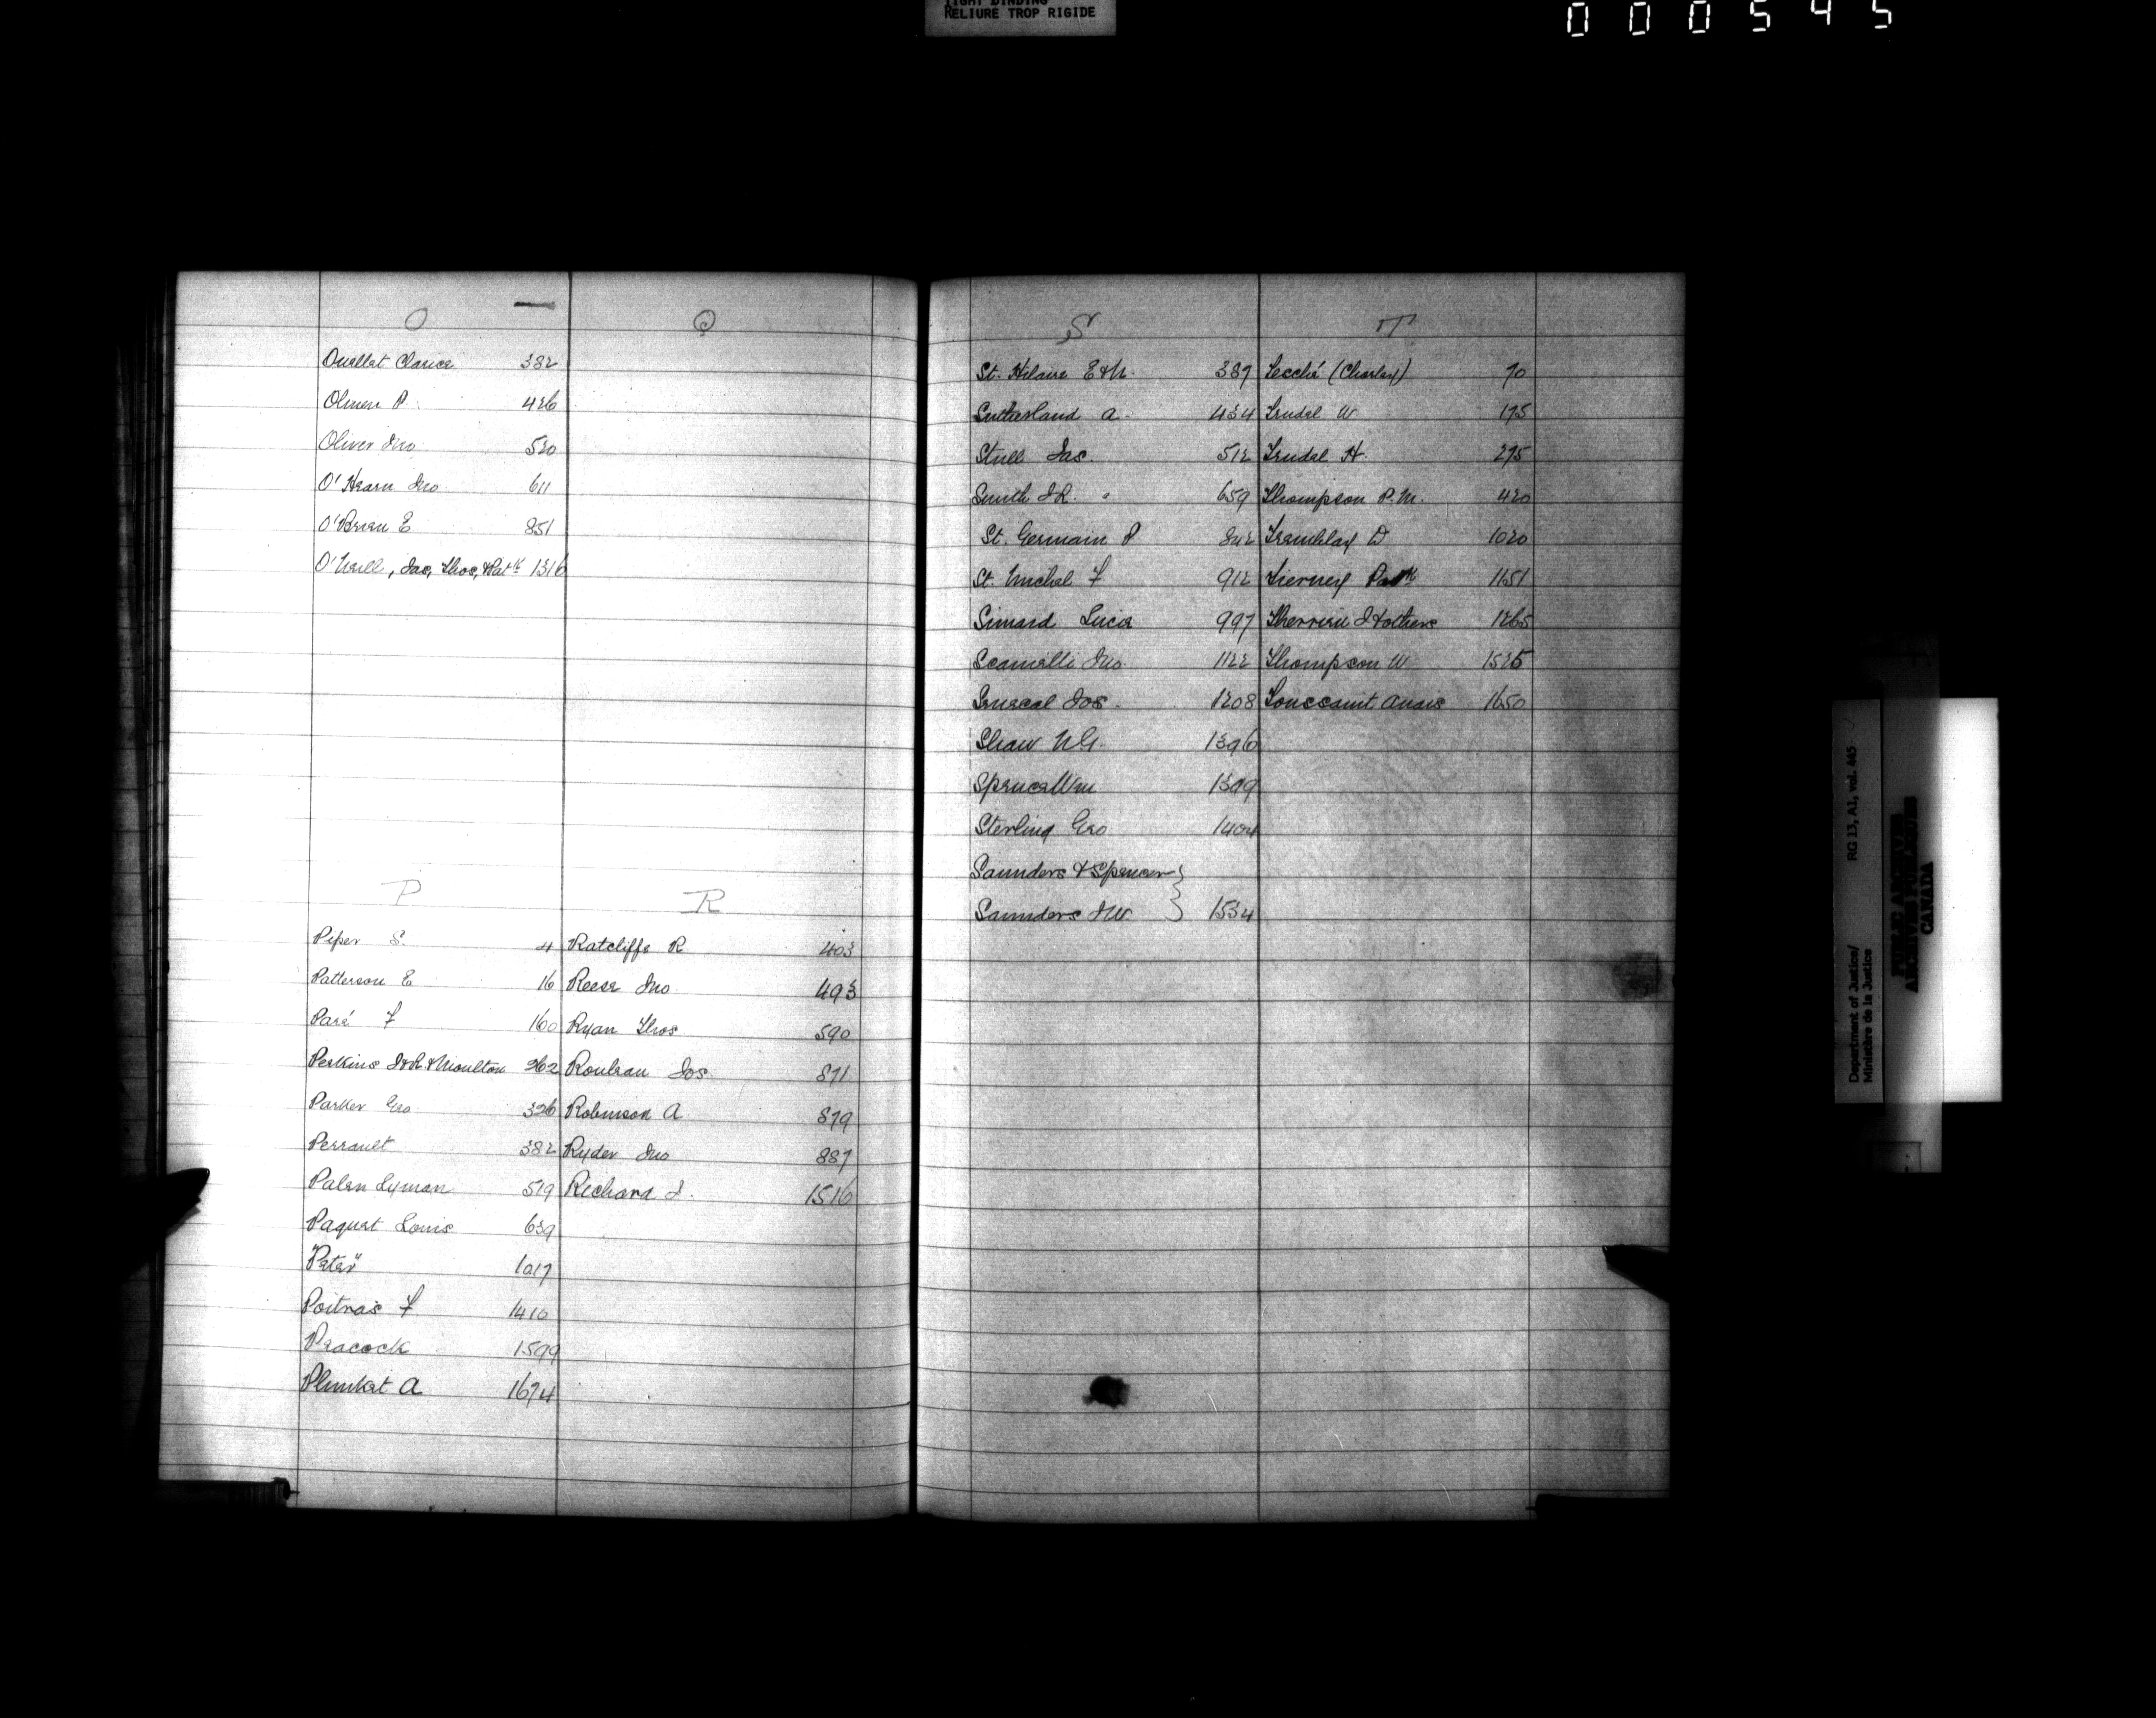 TIGHT BINDING
RELIURE TROP RIGIDE
000545
O
Ouellet Clarice 382
Olmen P. 426
Oliver Jno 520
O'Hearn Jno 611
O'Brien E 851
O'Neill, Jas, Thos, & Patk 1316
Q
P
Piper S. 4
Patterson E 16
Paré F 160
Perkins J&R. & Moulton 262
Parker Geo 326
Perrault 382
Palen Lyman 519
Paquet Louis 639
"Peter" 1017
Poitras F 1410
Peacock 1599
Plunket A 1674
R
Ratcliffe R 403
Reese Jno 493
Ryan Thos 590
Rouleau Jos 871
Robinson A 879
Ryder Jno 887
Richard J. 1516
S
St. Hilaire E & N. 387
Sutherland A. 434
Stull Jas. 512
Smith J.R. 659
St. Germain P 842
St. Michel F 912
Simard Luce 997
Scamelli Jno. 1122
Senecal Jos. 1208
Shaw N.G. 1396
Spence Wm 1399
Sterling Geo 1404
Saunders & Spencer
Saunders J.W. 1534
T
Tecché (Charley) 70
Trudel W 175
Trudel H. 275
Thompson P.M. 420
Tremblay D 1020
Tierney Patk 1151
Therrien J & others 1265
Thompson W 1525
Toussaint Anais 1650
Department of Justice/
Ministère de la Justice
RG 13, A1, vol. 445
PUBLIC ARCHIVES
ARCHIVES PUBLIQUES
CANADA